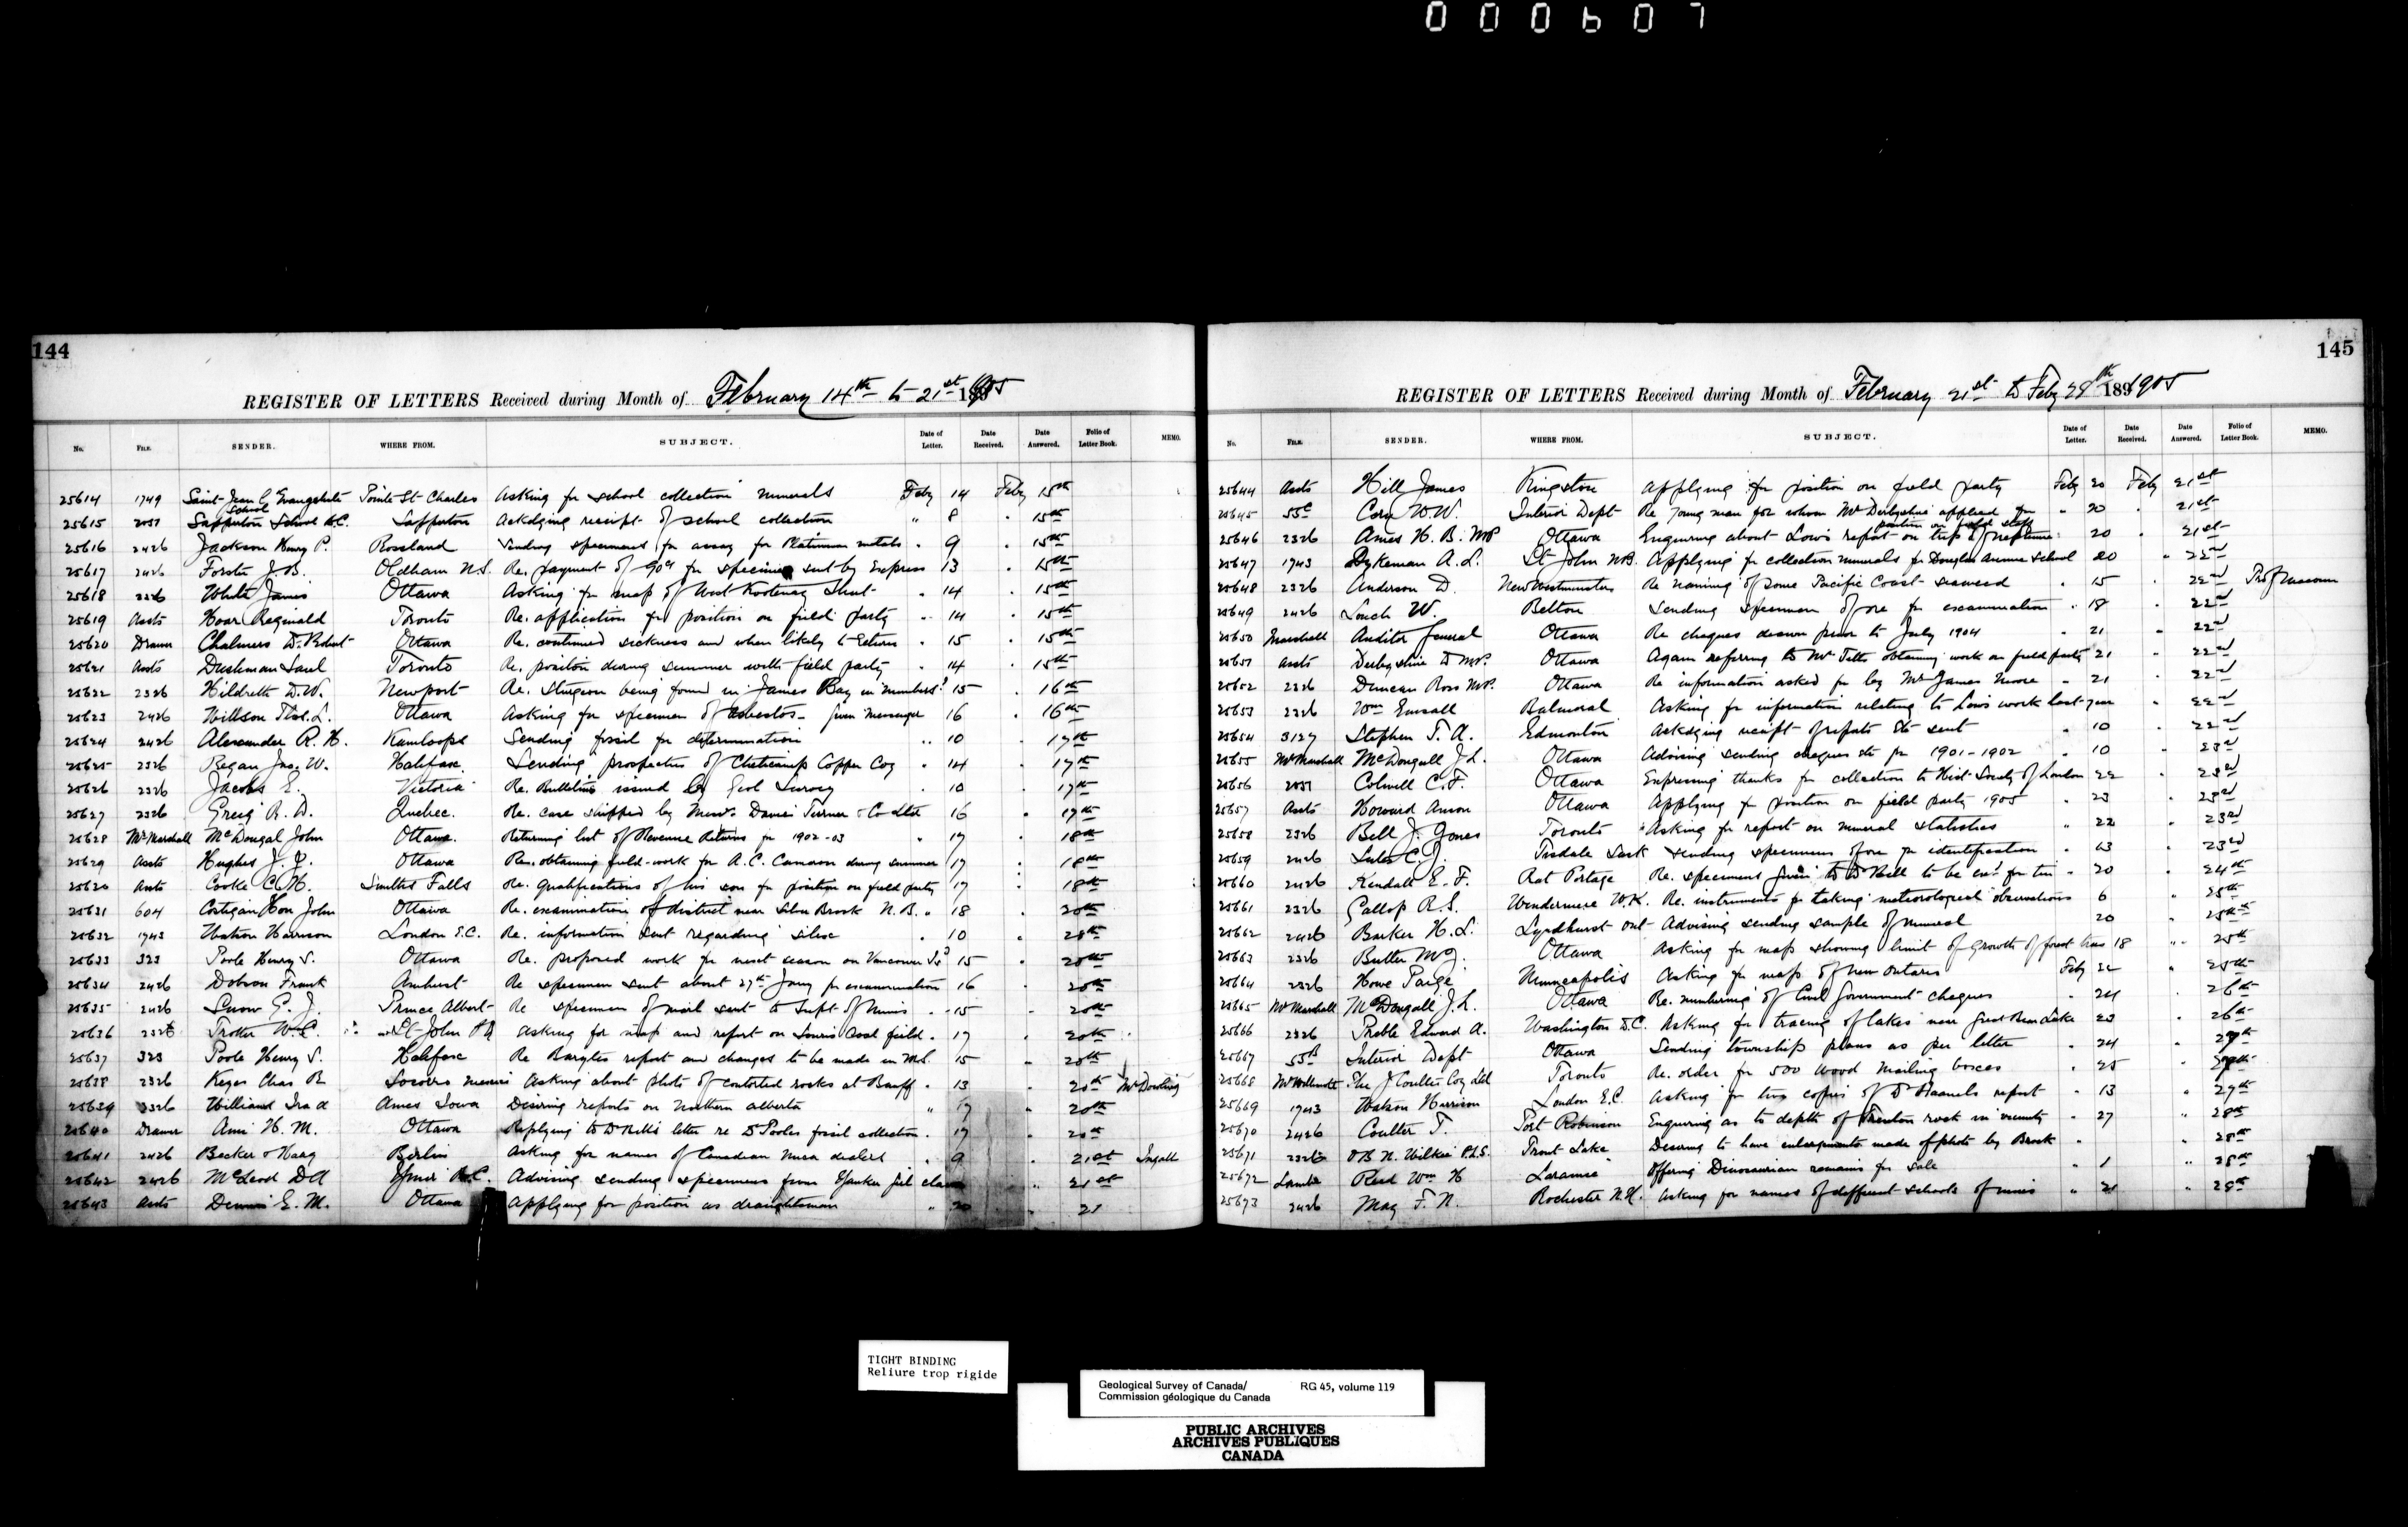 000607
144
REGISTER OF LETTERS Received during Month of February 14th to 21st 1905
No. FILE. SENDER. WHERE FROM. SUBJECT. Date of Letter. Date Received. Date Answered. Folio of Letter Book. MEMO.
25614 1749 Saint-Jean L'Evangeliste School Pointe St Charles Asking for school collection minerals Feby 14 Feby 15th
25615 2051 Sapperton School B.C. Sapperton Ackdging receipt of school collection " 8 15th
25616 2426 Jackson Henry P. Rossland Sending specimens for assay for Platinum metals 9 15th
25617 2426 Forster J. B. Oldham N.S. Re. payment of 90cts for specimens sent by Express 13 15th
25618 2326 White James Ottawa Asking for map of West Kootenay Sheet 14 15th
25619 Assts Hoar Reginald Toronto Re. application for position on field party 14 15th
25620 Drawer Chalmers Dr. Robert Ottawa Re. continued sickness and when likely to return 15 15th
25621 Assts Dushman Saul Toronto Re. position during summer with field party 14 15th
25622 2326 Hildreth D.W. Newport Re. Sturgeon being found in James Bay in numbers? 15 16th
25623 2426 Willson Thos. L. Ottawa Asking for specimen of asbestos - Given Messenger 16 16th
25624 2426 Alexander R. H. Kamloops Sending fossil for determination 10 17th
25625 2326 Regan Jno. W. Halifax Sending prospectus of Cheticamp Copper Coy 14 17th
25626 2326 Jacobs E. Victoria Re. Bulletins issued by Geol Survey 10 17th
25627 2326 Greig R. W. Quebec. Re. case shipped by Messrs. Davies Turner & Co Ltd 16 17th
25628 Mr Marshall McDougal John Ottawa. Returning list of Revenue Returns for 1902-03 17 18th
25629 Assts Hughes J. J. Ottawa Re. obtaining field-work for A.C. Cameron during summer 17 18th
25630 Assts Cooke C. H. Smiths Falls Re. qualifications of his son for position on field party 17 18th
25631 604 Costigan Hon John Ottawa Re. examination of district near Silver Brook N.B. 18 20th
25632 1743 Watson Harrison London E.C. Re. information sent regarding silica 10 20th
25633 323 Poole Henry S. Ottawa Re. proposed work for next season on Vancouver Isd 15 20th
25634 2426 Dobson Frank Amherst Re specimen sent about 27th Jany for examination 16 20th
25635 2426 Snow E. J. Prince Albert Re specimen of marl sent to Supt of Mines 15 20th
25636 2326 Trotter W. C. St John P.Q Asking for map and report on Souris Coal field 17 20th
25637 323 Poole Henry S. Halifax Re Barytes report and changes to be made in MS. 15 20th
25638 2326 Keyes Chas R Socorro Mexico Asking about photo of contorted rocks at Banff 13 20th Mr Dowling
25639 2326 Williams Ira A Ames Iowa Desiring reports on Northern Alberta " 17 20th
25640 Drawer Ami H. M. Ottawa Replying to Dr Bell's letter re Dr Poole's fossil collection. 17 20th
25641 2426 Becker & Haag Berlin Asking for names of Canadian Mica dealers 9 21st Ingall
25642 2426 McLeod D A Ymir B.C. Advising sending specimens from Yankee girl claim 21st
25643 Assts Dennis E. M. Ottawa Applying for position as draughtsman " 20 21
145
REGISTER OF LETTERS Received during Month of February 21st to Feby 28th 1891905
No. FILE. SENDER. WHERE FROM. SUBJECT. Date of Letter. Date Received. Date Answered. Folio of Letter Book. MEMO.
25644 Assts Hill James Kingston Applying for position on field party Feby 20 Feby 21st
25645 55c Cory W. W. Interior Dept Re young man for whom Mr Derbyshire applied for position on field staff " 20 21st
25646 2326 Ames H. B. MP Ottawa Enquiring about Low's report on trip of Neptune 20 21st
25647 1743 Dykeman A. L. St John N.B. Applying for collection minerals for Douglas Avenue School 20 22nd
25648 2326 Anderson D. New Westminster Re naming of some Pacific Coast seaweed 15 22nd Prof Macoun
25649 2426 Loach W. Belton Sending specimen of ore for examination 18 22nd
25650 Marshall Auditor General Ottawa Re cheques drawn prior to July 1904 21 22nd
25651 Assts Derbyshire D MP. Ottawa Again referring to Mr Tett's obtaining work on field party 21 22nd
25652 2326 Duncan Ross MP. Ottawa Re information asked for by Mr James Moore 21 22nd
25653 2326 Wm Balmoral Asking for information relating to Low's work last year 22nd
25654 3127 Stephen T. A. Edmonton Ackdging receipt of reports &c sent 10 22nd
25655 Mr Marshall McDougall J. L. Ottawa Advising sending cheques &c for 1901-1902 10 23rd
25656 2051 Colwell C. F. Ottawa Expressing thanks for collection to Hist Society of London 22 23rd
25657 Assts Howard Anson Ottawa Applying for position on field party 1905 23 23rd
25658 2326 Bell J. Jones Toronto Asking for report on mineral statistics " 22 23rd
25659 2426 C. J. Tisdale Sask Sending specimens of ore for identification 13 23rd
25660 2426 Kendall E. F. Rat Portage Re. specimens given to Dr Bell to be exd for tin 20 24th
25661 2326 Gallop R. S. Windermere W.K. Re. instruments for taking meteorological observations 6 25th
25662 2426 Barker H. L. Lyndhurst Ont Advising sending sample of mineral 20 25th
25663 2326 Butler M J. Ottawa Asking for map showing limit of growth of forest trees 18 25th
25664 2326 Howe Paige Minneapolis Asking for map of New Ontario Feby 22 25th
25665 Mr Marshall McDougall J. L. Ottawa Re. numbering of Civil Government cheques 24 26th
25666 2326 Preble Edward A. Washington D.C. Asking for tracing of lakes near Great Bear Lake 23 26th
25667 55A Interior Dept Ottawa Sending township plans as per letter 24 27th
25668 The J Coulter Coy Ltd Toronto Re. order for 500 wood mailing boxes 25 27th
25669 1743 Watson Harrison London E.C. Asking for two copies of Dr Haanel's report 13 27th
25670 2426 Coulter T. Port Robinson Enquiring as to depth of Trenton rock in vicinity 27 28th
25671 2326 O B N. Wilkie P.L.S. Trout Lake Desiring to have enlargements made of photo by Brock 28th
25672 Lambe Reed Wm H Laramie Offering Dinosaurian remains for sale 1 28th
25673 2426 May F. N. Rochester N.H. Asking for names of different schools of mines " 21 28th
TIGHT BINDING
Reliure trop rigide
Geological Survey of Canada/ RG 45, volume 119
Commission géologique du Canada
PUBLIC ARCHIVES
ARCHIVES PUBLIQUES
CANADA